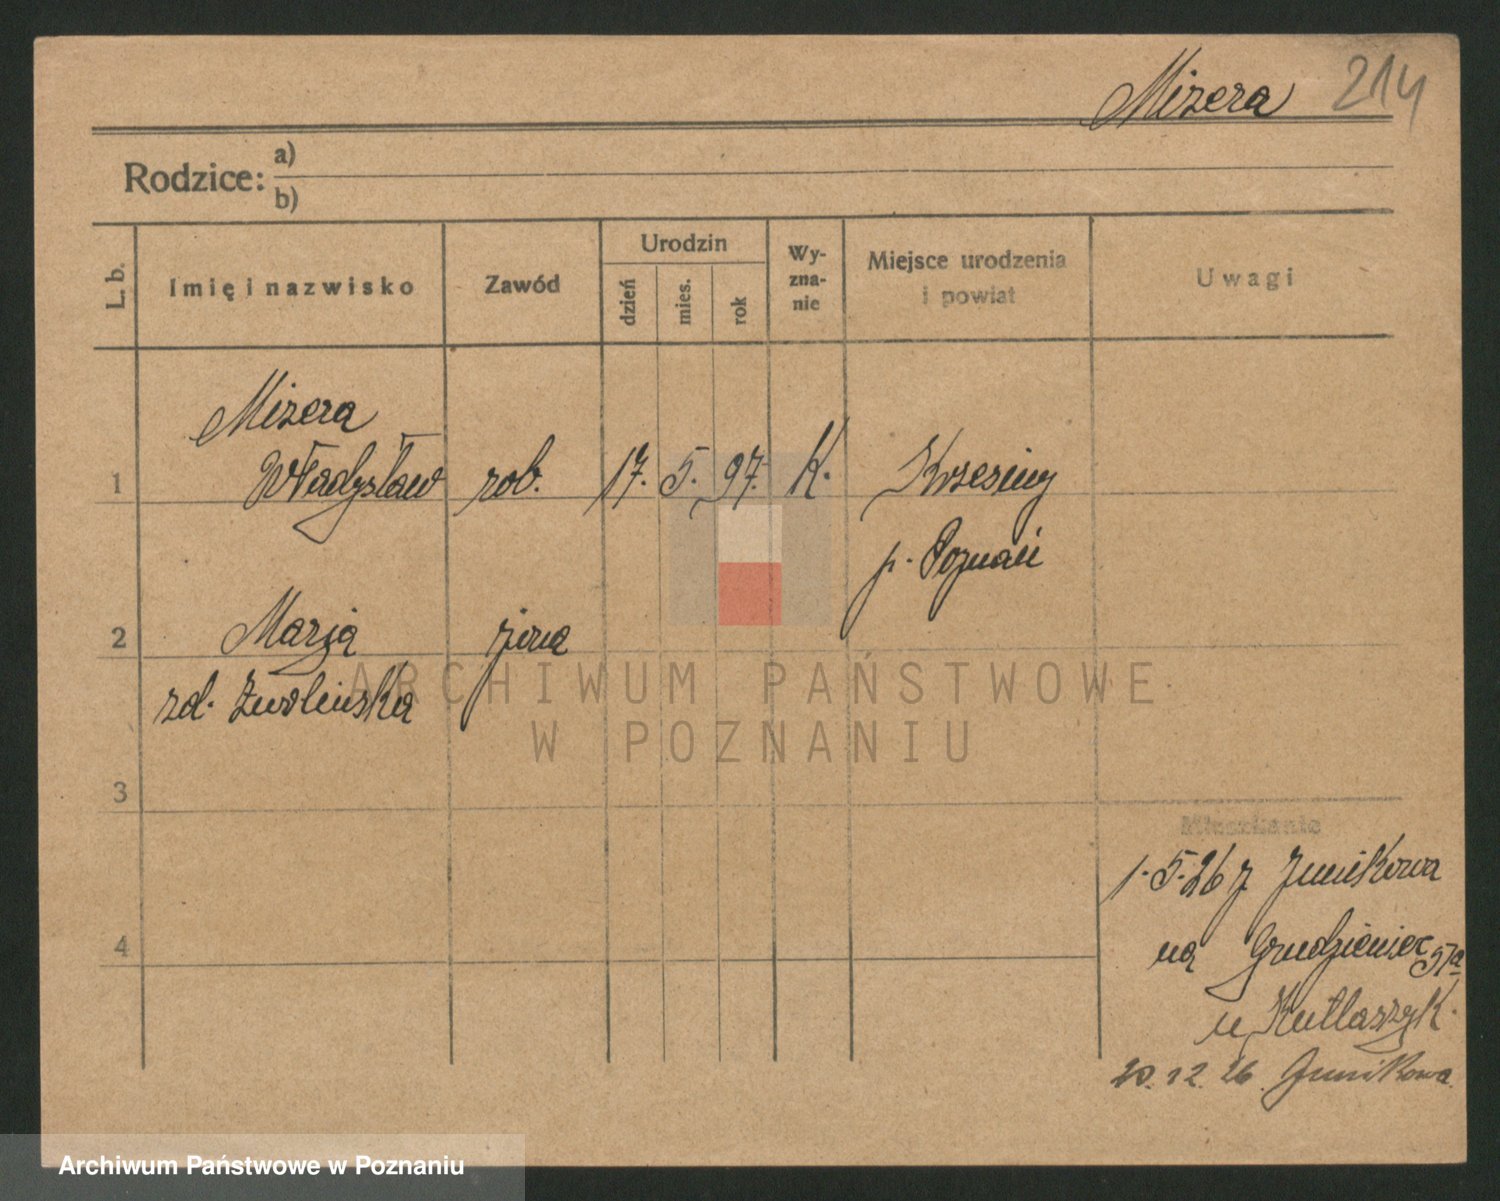 Mizera 214
Rodzice: a)
b)
L. b. Imię i nazwisko Zawód Urodzin dzień mies. rok Wy-zna-nie Miejsce urodzenia i powiat Uwagi
Mizera
1 Władysław rob. 17. 5. 97. K. Krzesiny
p. Poznań
2 Marja żona
zd. Zwolińska
ARCHIWUM PAŃSTWOWE
W POZNANIU
3
Mieszkanie
1.5.26 z Junikowa
4 na Grudzieniec 57a
u Kutlaszyk.
20.12.26. Junikowa.
Archiwum Państwowe w Poznaniu